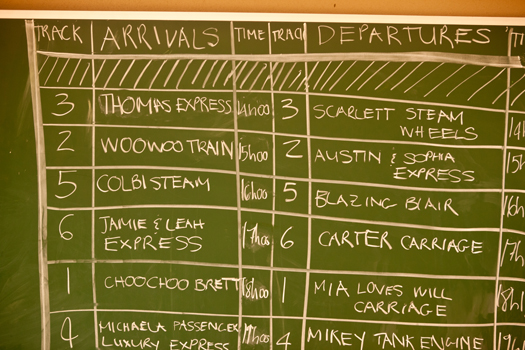 TRACK ARRIVALS TIME TRACK DEPARTURES
3 THOMAS EXPRESS 14h00 3 SCARLETT STEAM
WHEELS
2 WOOWOO TRAIN 15h00 2 AUSTIN & SOPHIA
EXPRESS
5 COLBISTEAM 16h00 5 BLAZING BLAIR
6 JAMIE & LEAH
EXPRESS 17h00 6 CARTER CARRIAGE
1 CHOOCHOO BRETT 18h00 1 MIA LOVES WILL
CARRIAGE
4 MICHAELA PASSENGER
LUXURY EXPRESS 4 MIKEY TANK ENGINE